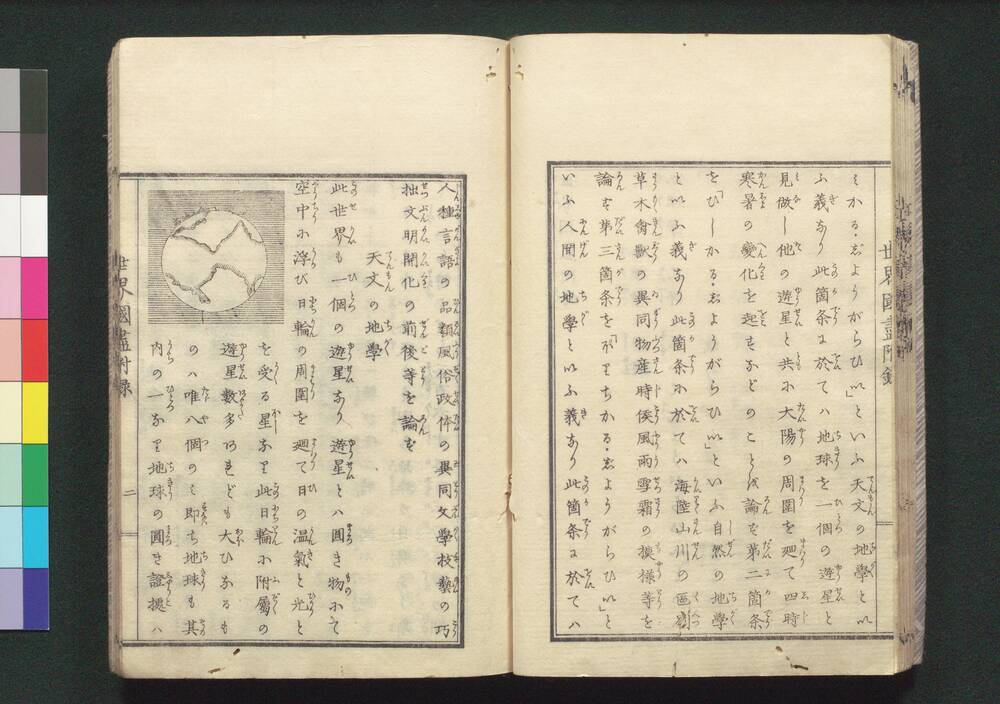 世界國盡附錄
ミかる・志よりがらひい」といふ天文の地學とい
ふ義なり此箇条に於てハ地球を一個の遊星と
見做し他の遊星と共に大陽の周圍を廻て四時
寒暑の變化を起すなどのことを論ず第二箇条
を「ひしかる・志よりがらひい」といふ自然の地學
といふ義なり此箇条に於てハ海陸山川の區別
草木禽獣の異同物産時侯風雨雪霜の模様等を
論ず第三箇条を「ちかる・志よりがらひい」と
いふ人間の地學といふ義なり此箇条に於てハ
人種言語の品類風俗政体の異同文學技藝の巧
拙文明開化の前後等を論ず
天文の地學
此世界も一個の遊星なり遊星とハ圓き物にて
空中に浮び日輪の周圍を廻て日の温氣と光と
を受る星なり此日輪に附屬の
遊星數多あれども大ひなるも
のハ唯八個のミ即ち地球も其
内の一なり地球の圓き證據ハ
世界國盡附錄
二